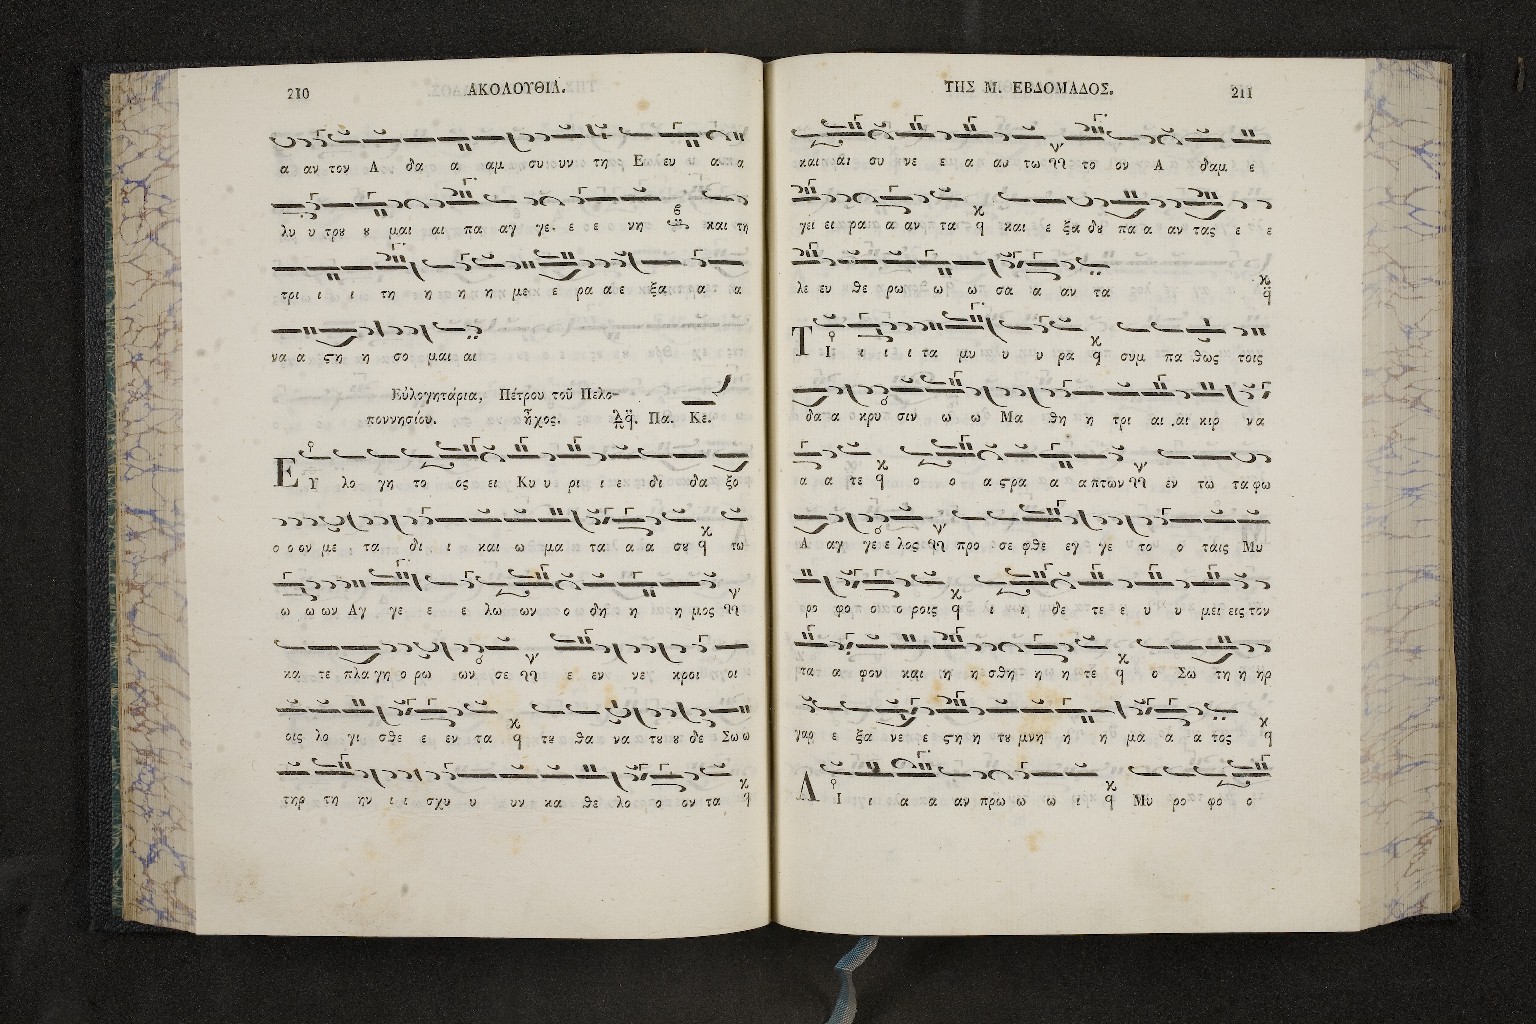 210 ΑΚΟΛΟΥΘΙΑ.
α αν τον Α δα α αμ συ υν τη Ε ευ α α
λυ υ τρȣ ȣ μαι αι πα αγ γε ε ε νη και τη
τρι ι ι τη η η η με ε ρα α ε ξα α α
να α ϛη η σο μαι αι
Εὐλογητάρια, Πέτρου τοῦ Πελο-
ποννησίου. ἦχος. Πα. Κε.
Ευ λο γη το ος ει Κυ υ ρι ι ε δι δα ξο
ο ο ον με τα δι ι και ω μα τα α α σου τω
ω ω ων Αγ γε ε ε λω ων ο δη η η μος
κα τε πλα γη ο ρω ων σε ε εν νε κροι οι
οις λο γι σθε ε εν τα τȣ θα να τȣ ȣ δε Σω ω
τηρ τη ην ι ι σχυ υ υν κα θε λο ο ον τα
ΤΗΣ Μ. ΕΒΔΟΜΑΔΟΣ. 211
και άι συ νε ε α αυ τω το ον Α δαμ ε
γει ει ρα α αν τα και ε ξα δȣ πα α αν τας ε ε
λε ευ θε ρω ω ω σα α αν τα
Τι ι ι ι τα μυ υ υ υ ρα συμ πα θως τοις
δα α κρυ σιν ω ω Μα θη η τρι αι αι κιρ να
α α τε ο ο α ϛρα α α πτων εν τω τα φω
Α αγ γε ε λος προ σε φθε εγ γε το ο ταις Μυ
ρο φο ο ο ροις ι ι δε τε ε υ υ μεις εις τον
τα α φον και η η σθη η η τε ο Σω τη η ηρ
γαρ ε ξα νε ε ϛη η τȣ μνη η η μα α α τος
Λι ι α α αν πρω ω ω ι Μυ ρο φο ο